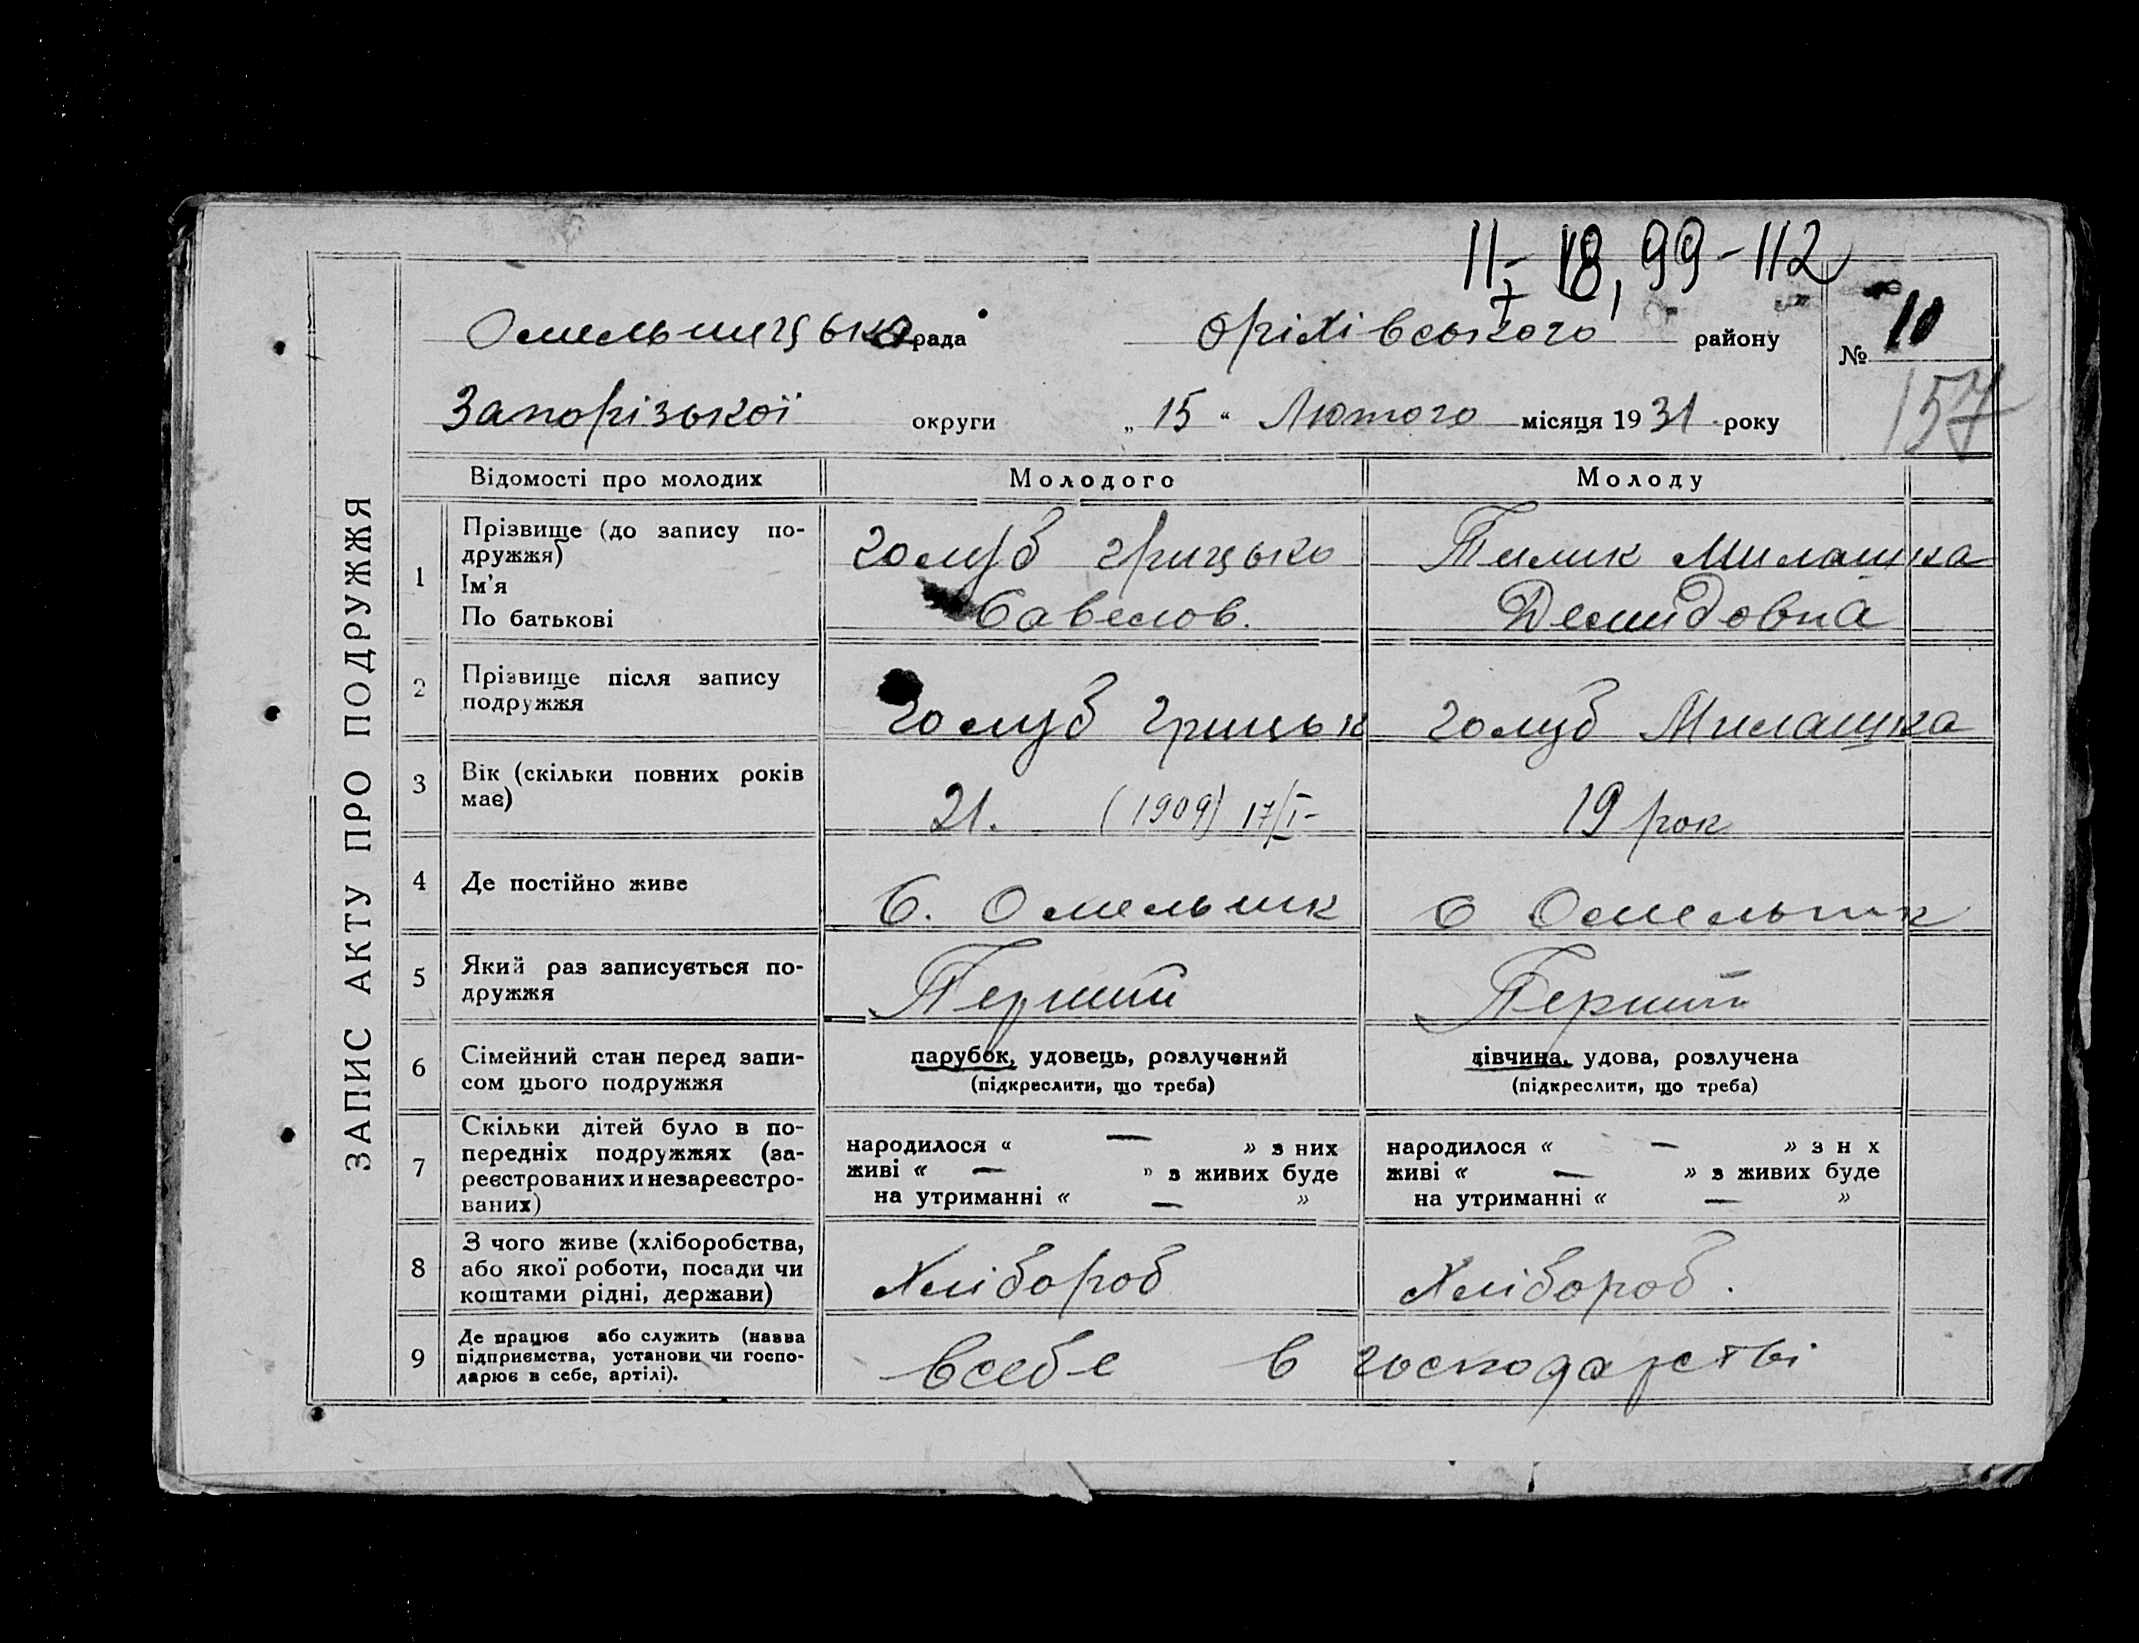 11-18, 99-112
Омельницька рада Оріхівського району № 10
Запорізької округи „15“ Лютого місяця 1931 року 157
ЗАПИС АКТУ ПРО ПОДРУЖЖЯ
Відомості про молодих Молодого Молоду
1 Прізвище (до запису по-
дружжя)
Ім'я
По батькові
Голуб Грицько
Савелов.
Тилик Милашка
Демидовна
2 Прізвище після запису
подружжя
Голуб Грицьк Голуб Милашка
3 Вік (скільки повних років
має)
21. (1909) 17/I- 19 рок
4 Де постійно живе С. Омельник С Омельник
5 Який раз записується по-
дружжя
Перший Перший
6 Сімейний стан перед запи-
сом цього подружжя
парубок, удовець, розлучений
(підкреслити, що треба)
дівчина, удова, розлучена
(підкреслити, що треба)
7 Скільки дітей було в по-
передніх подружжях (за-
реєстрованих и незареєстро-
ваних)
народилося « — » з них
живі « — » з живих буде
на утриманні « — »
народилося « — » з н х
живі « — » з живих буде
на утриманні « — »
8 З чого живе (хліборобства,
або якої роботи, посади чи
коштами рідні, держави)
Хлібороб Хлібороб.
9 Де працює або служить (назва
підприємства, установи чи госпо-
дарює в себе, артілі).
всебе в господарстві